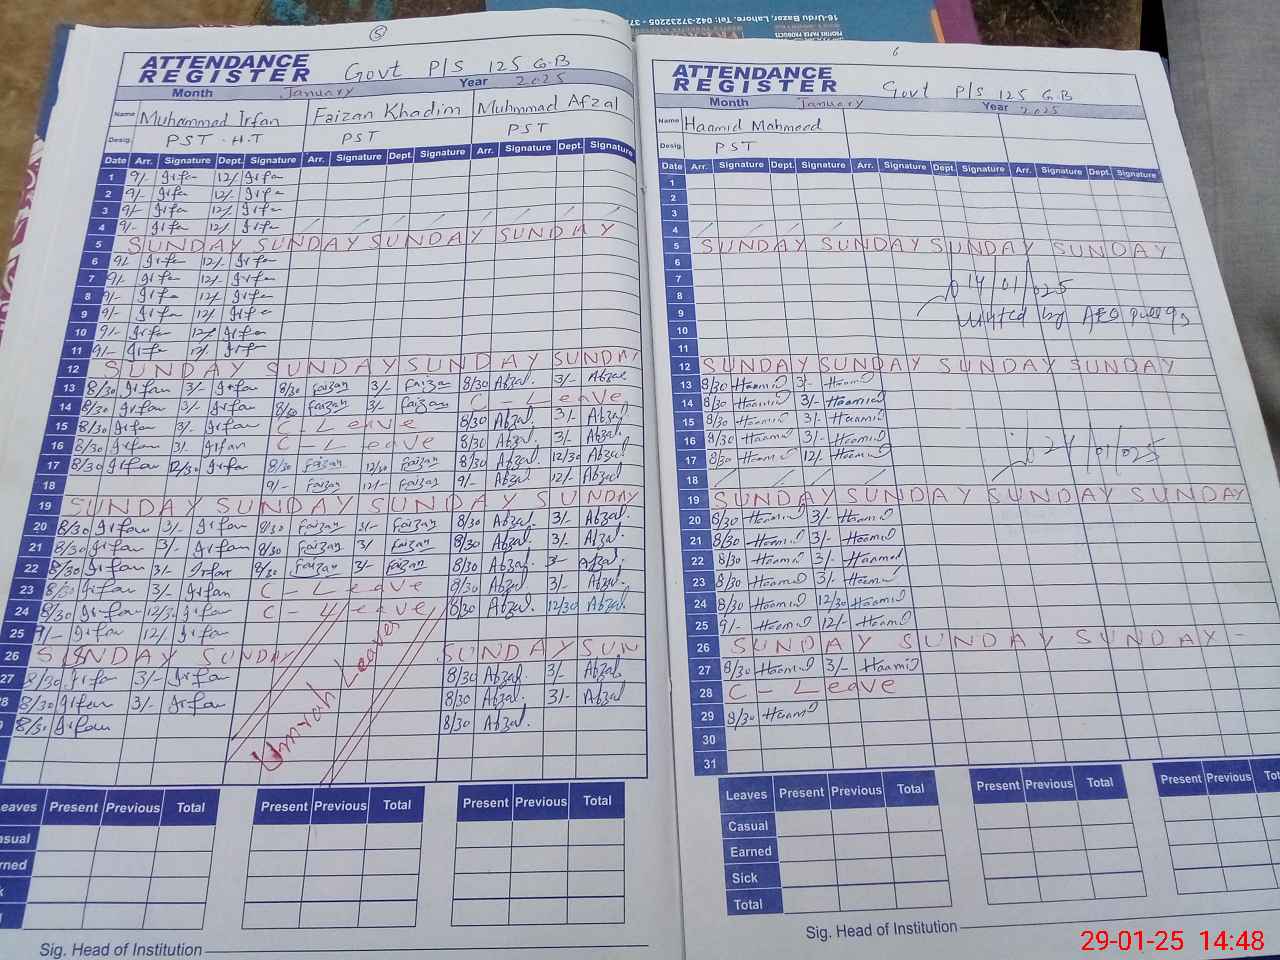 16-Urdu Bazar, Lahore. Tel: 042-37232205
5
ATTENDANCE
REGISTER
Govt P/S 125 G.B
Month January Year 2025
Name Muhammad Irfan Faizan Khadim Muhmmad Afzal
Desig. PST - H.T PST PST
Date Arr. Signature Dept. Signature Arr. Signature Dept. Signature Arr. Signature Dept. Signature
1 9/- Irfan 12/- Irfan
2 9/- Irfan 12/- Irfan
3 9/- Irfan 12/- Irfan
4 9/- Irfan 12/- Irfan
5 SUNDAY SUNDAY SUNDAY SUNDAY
6 9/- Irfan 12/- Irfan
7 9/- Irfan 12/- Irfan
8 9/- Irfan 12/- Irfan
9 9/- Irfan 12/- Irfan
10 9/- Irfan 12/- Irfan
11 9/- Irfan 12/- Irfan
12 SUNDAY SUNDAY SUNDAY SUNDAY
13 8/30 Irfan 3/- Irfan 8/30 Faizan 3/- Faizan 8/30 Abzal. 3/- Abzal
14 8/30 Irfan 3/- Irfan 8/30 Faizan 3/- Faizan C - Leave
15 8/30 Irfan 3/- Irfan C - Leave 8/30 Abzal 3/- Abzal
16 8/30 Irfan 3/- Irfan C - Leave 8/30 Abzal 3/- Abzal
17 8/30 Irfan 12/30 Irfan 8/30 Faizan 12/30 Faizan 8/30 Abzal. 12/30 Abzal
18 9/- Faizan 12/- Faizan 9/- Abzal. 12/- Abzal
19 SUNDAY SUNDAY SUNDAY SUNDAY
20 8/30 Irfan 3/- Irfan 8/30 Faizan 3/- Faizan 8/30 Abzal. 3/- Abzal.
21 8/30 Irfan 3/- Irfan 8/30 Faizan 3/- Faizan 8/30 Abzal. 3/- Abzal.
22 8/30 Irfan 3/- Irfan 8/30 Faizan 3/- Faizan 8/30 Abzal. 3/- Abzal.
23 8/30 Irfan 3/- Irfan C - Leave 8/30 Abzal. 3/- Abzal.
24 8/30 Irfan 12/30 Irfan C - Leave 8/30 Abzal. 12/30 Abzal.
25 9/- Irfan 12/- Irfan
Umrah Leave
26 SUNDAY SUNDAY SUNDAY SUN
27 8/30 Irfan 3/- Irfan 8/30 Abzal 3/- Abzal
28 8/30 Irfan 3/- Irfan 8/30 Abzal. 3/- Abzal
8/30 Irfan 8/30 Abzal.
Leaves Present Previous Total Present Previous Total Present Previous Total
Sig. Head of Institution
6
ATTENDANCE
REGISTER
Govt P/S 125 G.B
Month January Year 2025
Name Haamid Mahmeed
Desig. PST
Date Arr. Signature Dept. Signature Arr. Signature Dept. Signature Arr. Signature Dept. Signature
1
2
3
4
5 SUNDAY SUNDAY SUNDAY SUNDAY
6
7
8 14/01/025
9 visited by AEO
10
11
12 SUNDAY SUNDAY SUNDAY SUNDAY
13 8/30 Haamid 3/- Haamid
14 8/30 Haamid 3/- Haamid
15 8/30 Haamid 3/- Haamid
16 8/30 Haamid 3/- Haamid
17 8/30 Haamid 12/- Haamid 24/01/025
18
19 SUNDAY SUNDAY SUNDAY SUNDAY
20 8/30 Haamid 3/- Haamid
21 8/30 Haamid 3/- Haamid
22 8/30 Haamid 3/- Haamid
23 8/30 Haamid 3/- Haamid
24 8/30 Haamid 12/30 Haamid
25 9/- Haamid 12/- Haamid
26 SUNDAY SUNDAY SUNDAY SUNDAY
27 8/30 Haamid 3/- Haamid
28 C - Leave
29 8/30 Haamid
30
31
Leaves Present Previous Total Present Previous Total Present Previous
Casual
Earned
Sick
Total
Sig. Head of Institution
29-01-25 14:48